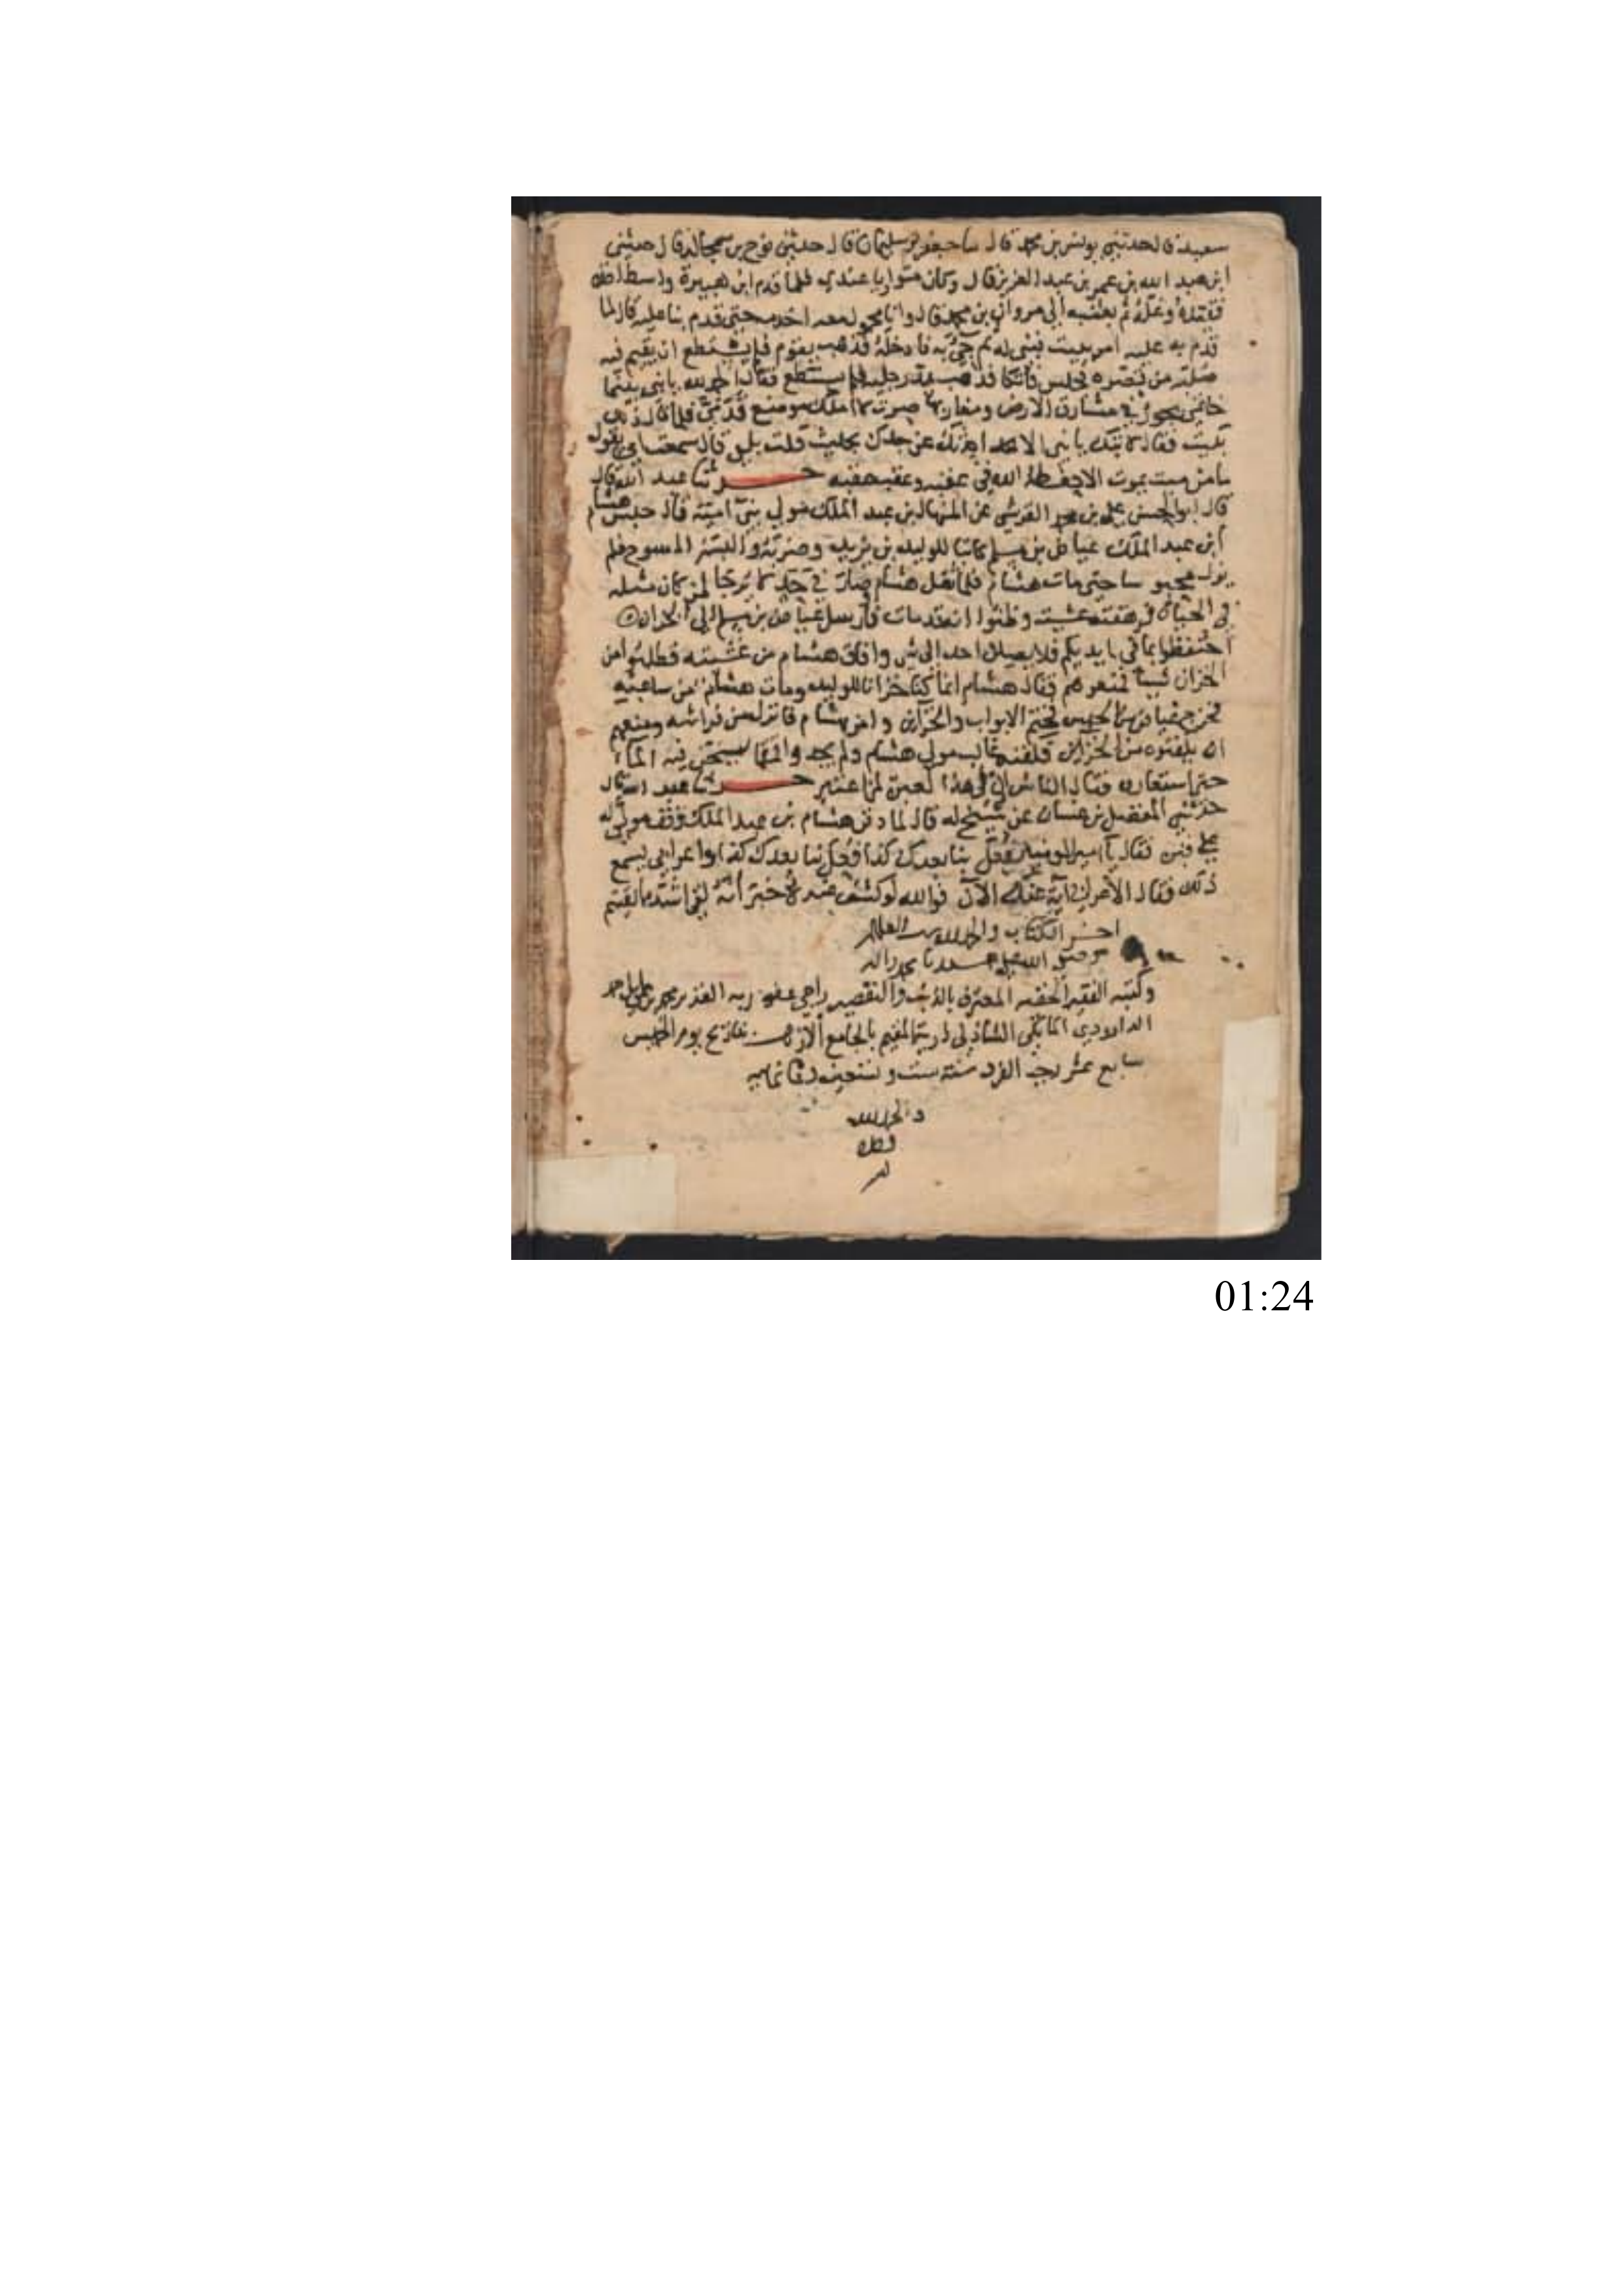 سعيد قال حدثني يونس بن محمد قال نا جعفر بن سليمان قال حدثني نوح بن مجالد قال حدثني
ابن عبد الله بن عمر بن عبد العزيز قال وكان متواريا عندي فلما قدم ابن هبيرة واسط اخذه
فقيده وغله ثم بعث به الى مروان بن محمد قال وانا محمول معه حتى قدم بنا عليه قال لما
قدم به عليه امر ببيت فبني له ثم جيء به فادخله فذهب يقوم فلم يستطع ان يقيم فيه
صلبه من قصره فجلس فاتكا فذهب يمد رجليه فلم يستطع فقال الحمد لله يا بني بينما
خاتمي يجوز في مشارق الارض ومغاربها صرت لا املك موضع قدمي فلما قال ذلك
بكيت فقال لا تبك يا بني الا احدثك عن جدك بحديث قلت بلى قال سمعت ابي يقول
ما من ميت يموت الا حفظه الله في عقبه وعقب عقبه حدثنا عبد الله قال
قال ابو الحسن علي بن محمد القرشي عن المنهال بن عبد الملك مولى بني امية قال حبس هشام
ابن عبد الملك عياض بن مسلم كاتبا للوليد بن يزيد وضربه والبسه المسوح فلم
يزل محبوسا حتى مات هشام فلما ثقل هشام صار في حد لا يرجا لمن كان مثله
في الحياة فرهقته غشية وظنوا انه قد مات فارسل عياض بن مسلم الى الخزان
احتفظوا بما في ايديكم فلا يصلن احد الى شي وافاق هشام من غشيته فطلبوا من
الخزان شيئا فمنعوهم فقال هشام انما كنا خزانا للوليد ومات هشام من ساعته
فخرج عياض من الحبس فختم الابواب والخزاين وامر بهشام فانزل من فراشه ومنعهم
ان يكفنوه من الخزاين فكفنه غالب مولى هشام ولم يجدوا قمقما يسخن فيه الماء
حتى استعاروه فقال الناس ان في هذا لعبرة لمن اعتبر حدثنا عبد الله قال
حدثني المفضل بن غسان عن شيخ له قال لما دفن هشام بن عبد الملك وقف مولى له
على قبره فقال يا امير المومنين فعل بنا بعدك كذا وفعل بنا بعدك كذا واعرابي يسمع
ذلك فقال الاعرابي اية عنك الآن فوالله لو كشف عنه لاخبر انه لقي اشد مما لقيتم
اخر الكتاب والحمد لله رب العالمين
وصلى الله على سيدنا محمد واله
وكتبه الفقير الحقير المعترف بالذنب والتقصير راجي عفو ربه القدير محمد بن علي بن احمد
الداوودي المالكي الشاذلي المقيم بالجامع الازهر بتاريخ يوم الخميس
سابع عشر رجب الفرد سنة ست وتسعين وثمانمايه
والحمد لله